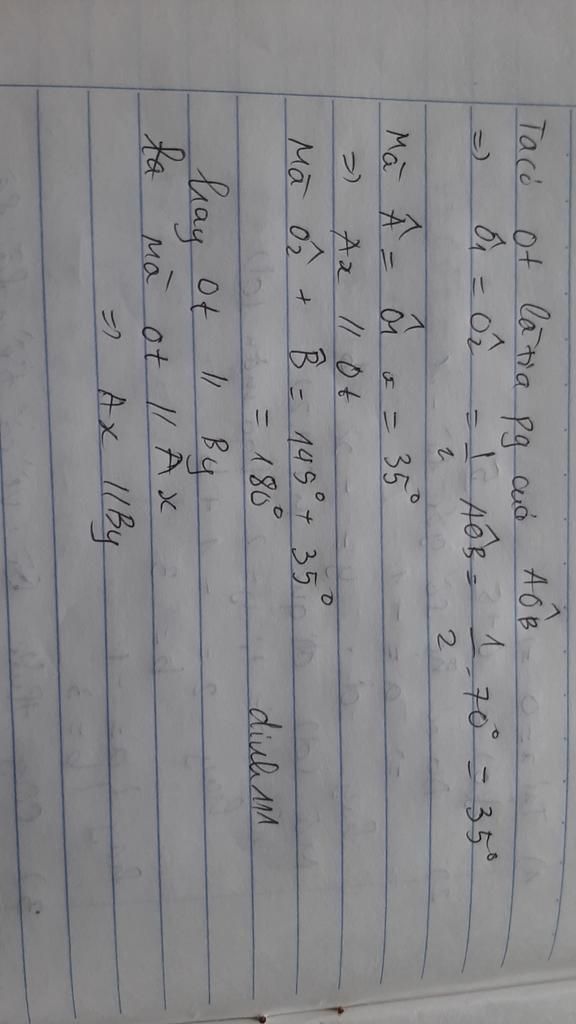 Ta có Ot là tia pg của AÔB
=> Ô1 = Ô2 = 1/2 AÔB = 1/2 . 70° = 35°
Mà Â = Ô1 = 35°
=> Ax // Ot
Mà Ô2 + B̂ = 145° + 35°
= 180°
hay Ot // By
ta mà Ot // Ax
=> Ax // By